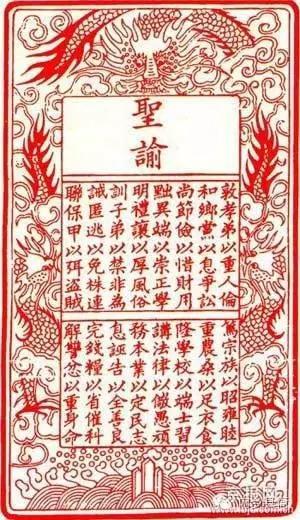 聖諭
敦孝弟以重人倫
篤宗族以昭雍睦
和鄉黨以息爭訟
重農桑以足衣食
尚節儉以惜財用
隆學校以端士習
黜異端以崇正學
講法律以儆愚頑
明禮讓以厚風俗
務本業以定民志
訓子弟以禁非為
息誣告以全善良
誡匿逃以免株連
完錢糧以省催科
聯保甲以弭盜賊
解讐忿以重身命